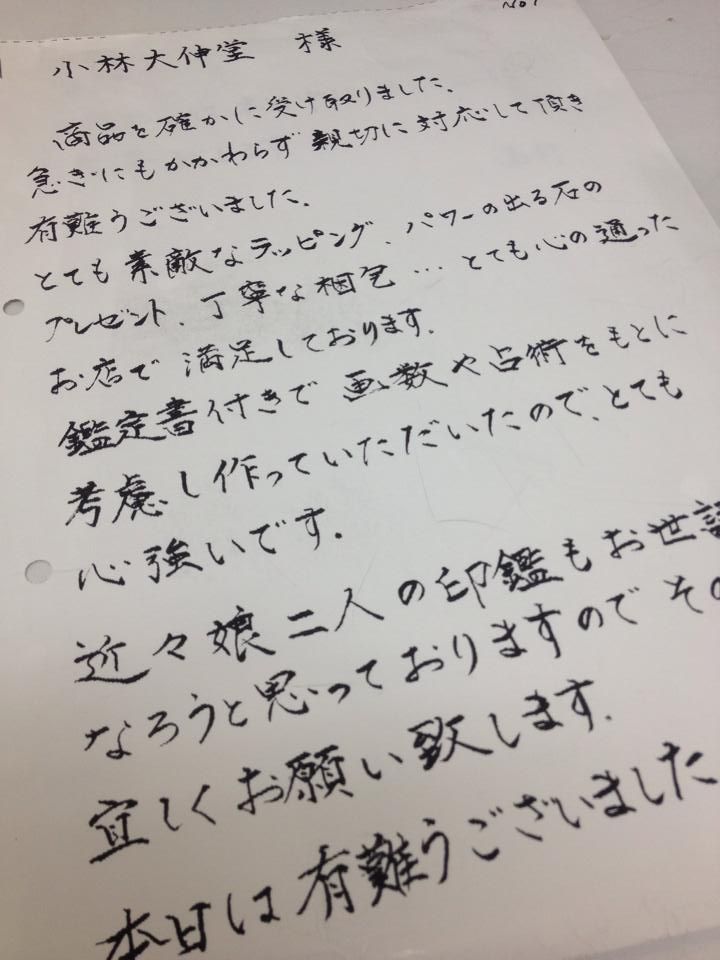 No1
小林大伸堂 様
商品を確かに受け取りました。
急ぎにもかかわらず親切に対応して頂き
有難うございました。
とても素敵なラッピング、パワーの出る石の
プレゼント、丁寧な梱包…とても心の通った
お店で満足しております。
鑑定書付きで画数や占術をもとに
考慮し作っていただいたので、とても
心強いです。
近々娘二人の印鑑もお世話
なろうと思っておりますのでその
宜しくお願い致します。
本日は有難うございました